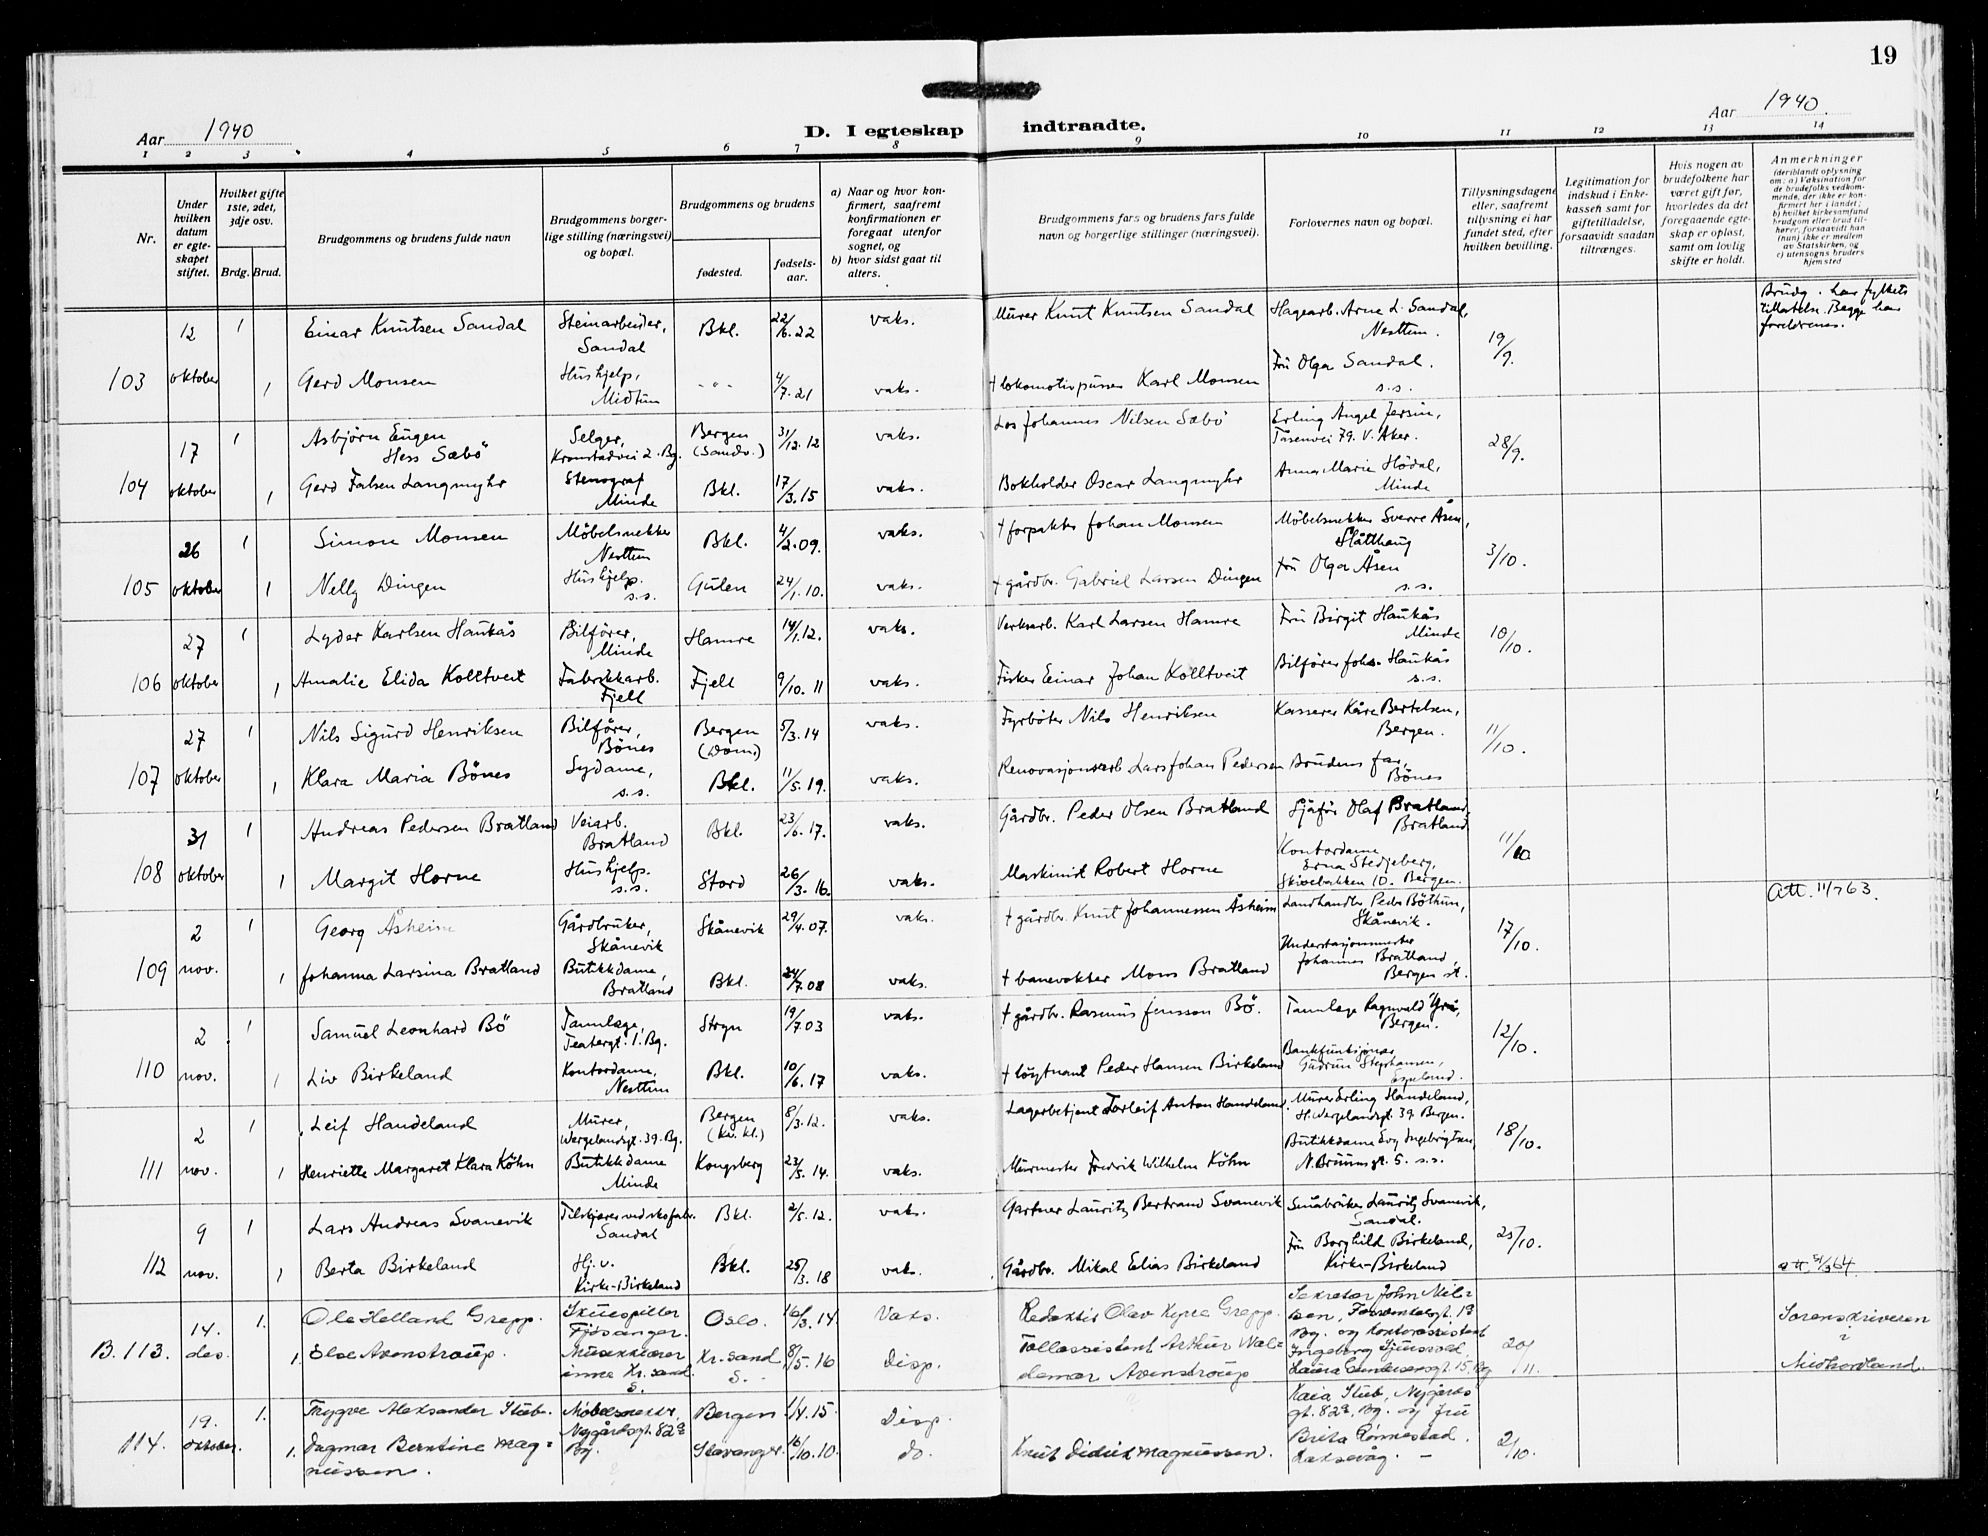 19
Aar 1940
D. I egteskap indtraadte.
Aar 1940
1 2 3 4 5 6 7 8 9 10 11 12 13 14
Nr.
Under hvilken datum er egteskapet stiftet.
Hvilket gifte 1ste, 2det, 3dje osv.
Brdg. Brud.
Brudgommens og brudens fulde navn
Brudgommens borgerlige stilling (næringsvei) og bopæl.
Brudgommens og brudens
fødested.
fødselsaar.
a) Naar og hvor konfirmert, saafremt konfirmationen er foregaat utenfor sognet, og
b) hvor sidst gaat til alters.
Brudgommens fars og brudens fars fulde navn og borgerlige stillinger (næringsvei).
Forlovernes navn og bopæl.
Tillysningsdagene eller, saafremt tillysning ei har fundet sted, efter hvilken bevilling.
Legitimation for indskud i Enkekassen samt for giftetilladelse, forsaavidt saadan tiltrænges.
Hvis nogen av brudefolkene har været gift før, hvorledes da det foregaaende egteskap er opløst, samt om lovlig skifte er holdt.
Anmerkninger (deriblandt oplysning om: a) Vaksination for de brudefolks vedkommende, der ikke er konfirmert her i landet; b) hvilket kirkesamfund brudgom eller brud tilhører, forsaavidt han (hun) ikke er medlem av Statskirken, og c) utensogns bruders hjemsted
103 12 oktober 1 Einar Knutsen Sandal Steinarbeider, Sandal Bkl. 22/6.22 vaks. Murer Knut Knutsen Sandal Hagearb. Arne L. Sandal, Nesttun. 19/9. Brudg. har fylkets tillatelse. Begge har foreldrenes.
1 Gerd Monsen Hushjelp, Midtun -"- 4/7.21 vaks. + lokomotivpusser Karl Monsen Fru Olga Sandal. s.s.
104 17 oktober 1 Asbjørn Eugen Hess Sæbö Selger, Kronstadvei 2. Bg. Bergen (Sandv.) 31/12.12 vaks. Los Johannes Nilsen Sæbö Erling Angel Jersin, Tåsenvei 79. V. Aker. 28/9.
1 Gerd Falsen Langmyhr Stenograf Minde Bkl. 17/3.15 vaks. Bokholder Oscar Langmyhr Anna Marie Hödal, Minde
105 26 oktober 1 Simon Monsen Möbelsnekker Nesttun Bkl. 4/2.09. vaks. + forpakter Johan Monsen Möbelsnekker Sverre Åsen, Slåtthaug 3/10.
1 Nelly Dingen Hushjelp. s.s. Gulen 24/1.10. vaks. + gårdbr. Gabriel Larsen Dingen Fru Olga Åsen s.s.
106 27 oktober 1 Lyder Karlsen Haukås Bilförer, Minde Hamre 14/1.12. vaks. Verksarb. Karl Larsen Hamre Fru Birgit Haukås Minde 10/10.
1 Amalie Elida Kolltveit Fabrikkarb. Fjell Fjell 9/10.11 vaks. Fisker Einar Johan Kolltveit Bilförer Johs. Haukås s.s.
107 27 oktober 1 Nils Sigurd Henriksen Bilförer, Bönes Bergen (Dom) 5/3.14 vaks. Fyrböter Nils Henriksen Kasserer Kåre Bertelsen, Bergen. 11/10.
1 Klara Maria Bönes Sydame, s.s. Bkl. 11/5.19. vaks. Renovasjonsarb Lars Johan Pedersen Brudens far, Bönes
108 31 oktober 1 Andreas Pedersen Bratland Veiarb. Bratland Bkl. 23/6.17. vaks. Gårdbr. Peder Olsen Bratland Sjåför Olaf Bratland, Bratland 11/10
1 Margit Horne Hushjelp. s.s. Stord 26/3.16. vaks. Maskinist Robert Horne Kontordame Erna Stedjeberg, Skivebakken 10. Bergen.
109 2 nov. 1 Georg Åsheim Gårdbruker, Skånevik Skånevik 29/4.07. vaks. + gårdbr. Knut Johannessen Åsheim Landhandler Peder Böthun, Skånevik. 17/10. Att. 11/7 63.
1 Johanna Larsina Bratland Butikkdame, Bratland Bkl. 24/7.08 vaks. + banevokter Mons Bratland Understasjonmester Johannes Bratland, Bergen st.
110 2 nov. 1 Samuel Leonhard Bö Tannlege, Teatergt. 1. Bg. Stryn 19/7.03 vaks. + gårdbr. Rasmus Jensson Bö. Tannlege Ragnvald Yri, Bergen. 12/10.
1 Liv Birkeland Kontordame, Nesttun Bkl. 10/6.17 vaks. + löytnant Peder Hansen Birkeland Bankfunksjonær Gudrun Stephansen, Espeland.
111 2 nov. 1 Leif Handeland Murer, Wergelandsgt. 39. Bg. Bergen (Kr. kl.) 8/3.12. vaks. Lagerbetjent Torleif Anton Handeland Murer Erling Handeland, H. Wergelandsgt. 39. Bergen. 18/10.
1 Henriette Margaret Klara Köhn Butikkdame Minde Kongsberg 23/5.14. vaks. Murmester Fredrik Wilhelm Köhn Butikkdame Evy Ingebrigtsen, N. Bruunsgt. 5. s.s.
112 9 nov. 1 Lars Andreas Svanevik Tilskjærer ved skofabr. Sandal Bkl. 2/5.12. vaks. Gartner Lauritz Bertrand Svanevik Småbruker Lauritz Svanevik, Sandal. 25/10.
1 Berta Birkeland Hj. v. Kirke-Birkeland Bkl. 25/3.18 vaks. Gårdbr. Mikal Elias Birkeland Fru Borghild Birkeland, Kirke-Birkeland att. 64.
B. 113. 14. des. 1. Ole Helland Grepp. Skuespiller Fjösanger. Oslo. 16/3.14 Vaks. Redaktör Olav Kyrre Grepp. Sekretær John Nilsen, 19 Bg. og kontorassistent Ingeborg 15. Bg 20/11. Sorenskriveren i Midhordland.
1. Else Avenstroup. Kr. sand S. Kr. sand S. 8/5.16 Disp. Tollassistent Arthur Waldemar Avenstroup
114. 19. oktober. 1. Trygve Aleksander Stub. Möbelsnekker, Nygårdsgt. 82a Bg. Bergen 1/4.15. Disp. Kaia Stub, Nygårdsgt. 82a, Bg. og fru Brita Rönnestad. Laksevåg. 2/10.
1. Dagmar Berntine Magnussen. Stavanger. 16/10.10. do. Knut Didrik Magnussen.